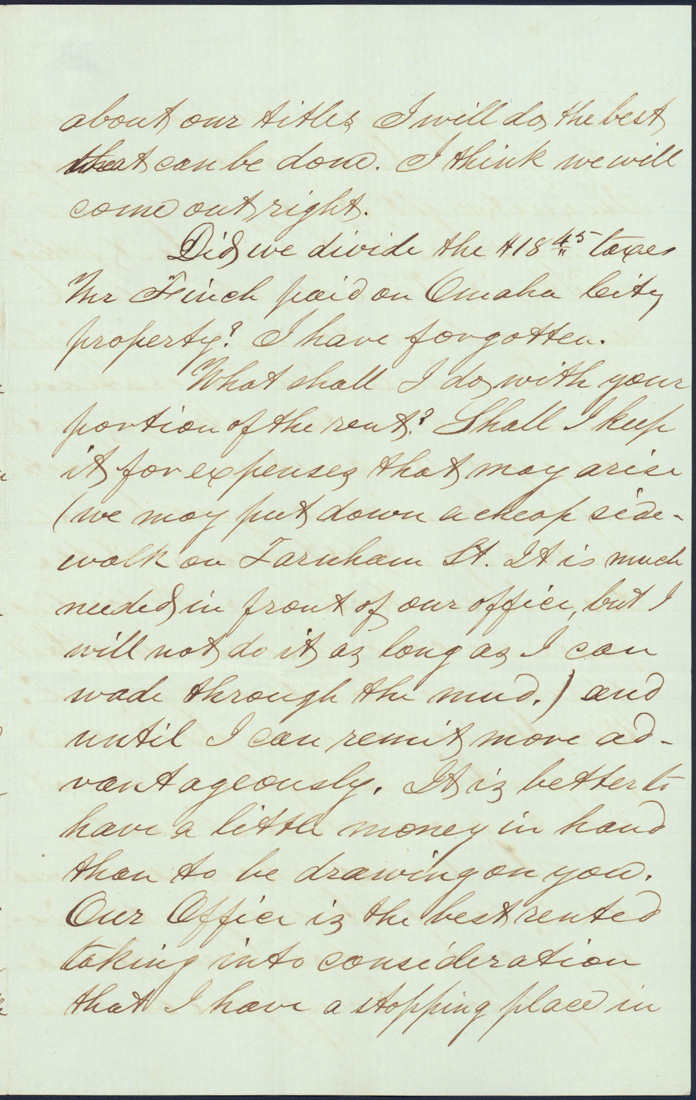 about our titles I will do the best
that can be done. I think we will
come out right.
Did we divide the $18 45 taxes
Mr Finch paid on Omaha City
property? I have forgotten.
What shall I do with your
portion of the rent? Shall I keep
it for expenses that may arise
(we may put down a cheap side-
walk on Farnham St. It is much
needed in front of our office, but I
will not do it as long as I can
wade through the mud.) and
until I can remit more ad-
vantageously. It is better to
have a little money in hand
than to be drawing on you.
Our Office is the best rented
taking into consideration
that I have a stopping place in